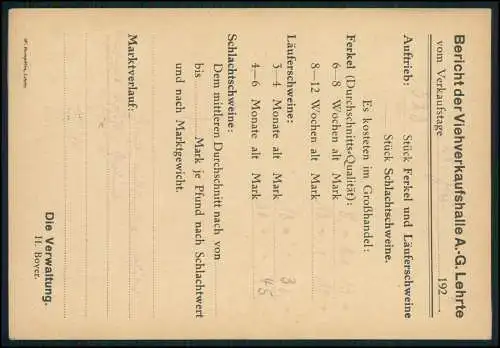 Bericht der Viehverkaufshalle A.-G. Lehrte
vom Verkaufstage 192
Auftrieb: Stück Ferkel und Läuferschweine
Stück Schlachtschweine.
Es kosteten im Großhandel:
Ferkel (Durchschnitts-Qualität):
6—8 Wochen alt Mark
8—12 Wochen alt Mark
Läuferschweine:
3—4 Monate alt Mark
4—6 Monate alt Mark 45
Schlachtschweine:
Dem mittleren Durchschnitt nach von
bis Mark je Pfund nach Schlachtwert
und nach Marktgewicht.
Marktverlauf:
Die Verwaltung.
H. Bover.